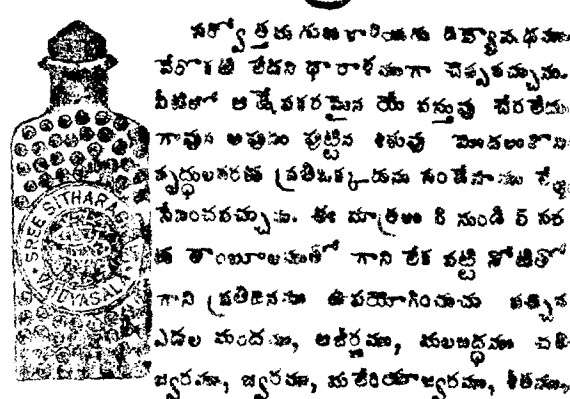 సర్వోత్తమ గుణ దివ్యౌషధము
వేరొకటి లేదని ధారాళముగా చెప్పవచ్చును.
వీటిలో ఆక్షేపకరమైన యే వస్తువు చేరలేదు
గావున అప్పుడు పుట్టిన శిశువు మొదలుకొని
వృద్ధులవరకు ప్రతిఒక్కడును
సేవించవచ్చును. ఈ మాత్రలు నుండి వర
కు తాంబూలముతో గాని లేక వట్టి నోటితో
గాని ప్రతిదినము ఉపయోగించుచు వచ్చిన
ఎడల మందము, అజీర్ణము, మలబద్ధము చలి
జ్వరము, జ్వరము, మలేరియాజ్వరము, శీతము,
SREE SITHARAG
VAIDYASALA